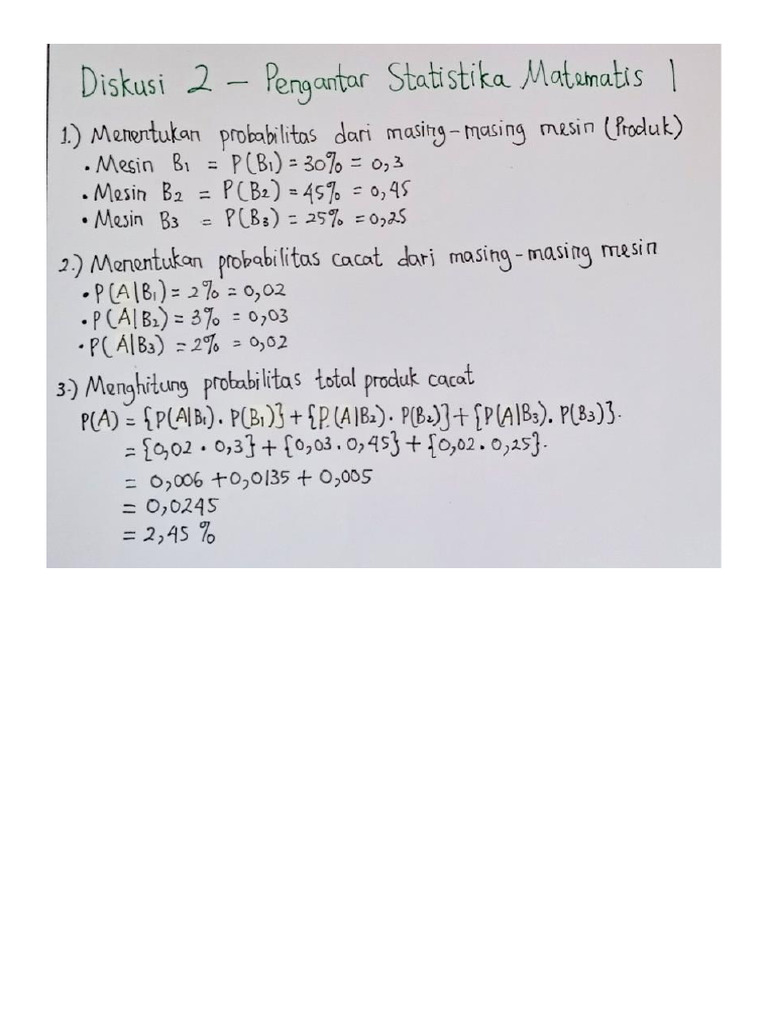 Diskusi 2 – Pengantar Statistika Matematis 1
1.) Menentukan probabilitas dari masing-masing mesin (Produk)
• Mesin B₁ = P(B₁) = 30% = 0,3
• Mesin B₂ = P(B₂) = 45% = 0,45
• Mesin B₃ = P(B₃) = 25% = 0,25
2.) Menentukan probabilitas cacat dari masing-masing mesin
• P(A|B₁) = 2% = 0,02
• P(A|B₂) = 3% = 0,03
• P(A|B₃) = 2% = 0,02
3.) Menghitung probabilitas total produk cacat
P(A) = {P(A|B₁). P(B₁)} + {P(A|B₂). P(B₂)} + {P(A|B₃). P(B₃)}.
= {0,02 . 0,3} + {0,03 . 0,45} + {0,02 . 0,25}.
= 0,006 + 0,0135 + 0,005
= 0,0245
= 2,45 %